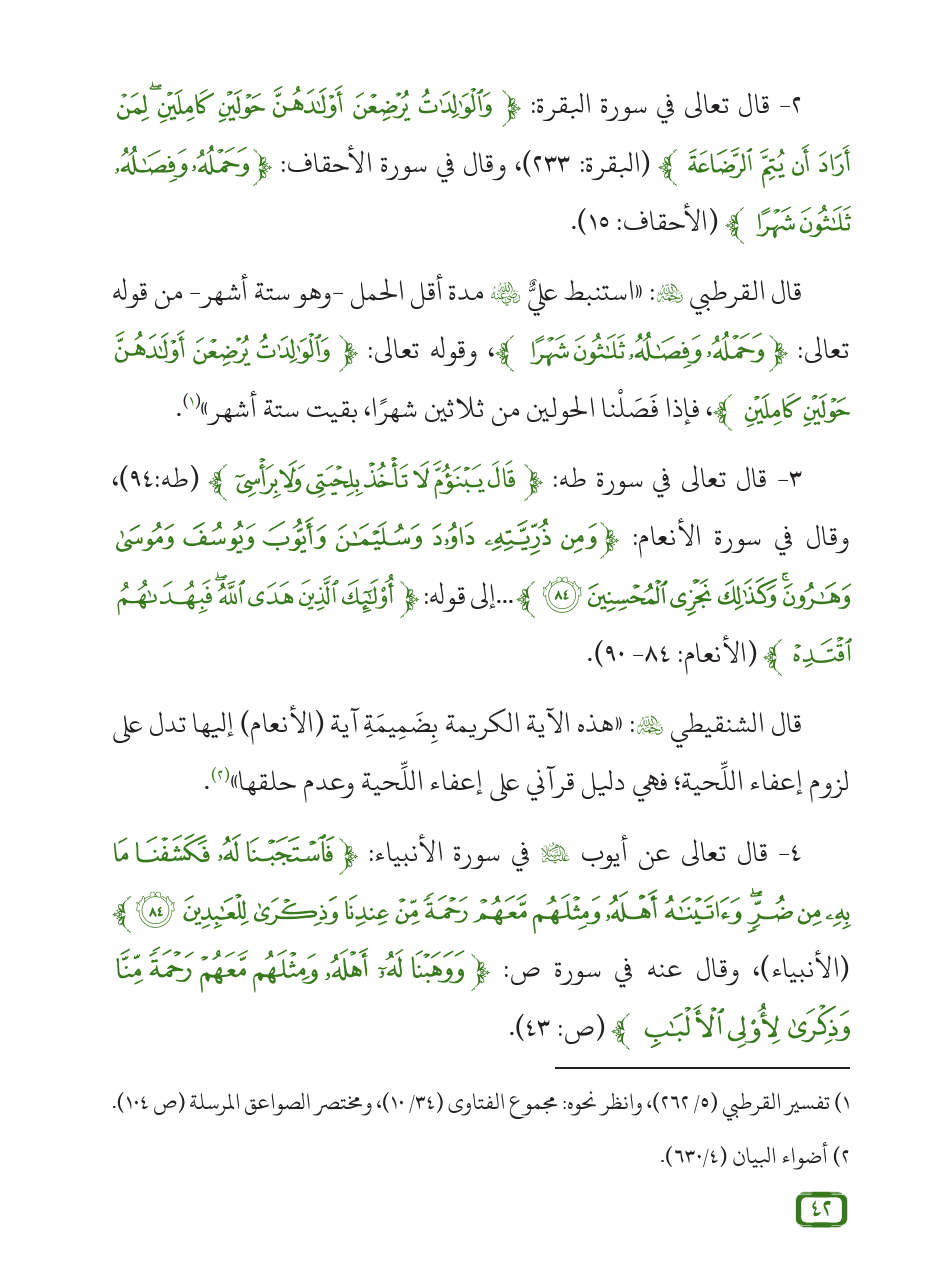 ٢- قال تعالى في سورة البقرة: ﴿ وَٱلْوَٰلِدَٰتُ يُرْضِعْنَ أَوْلَٰدَهُنَّ حَوْلَيْنِ كَامِلَيْنِ ۖ لِمَنْ
أَرَادَ أَن يُتِمَّ ٱلرَّضَاعَةَ ﴾ (البقرة: ٢٣٣)، وقال في سورة الأحقاف: ﴿ وَحَمْلُهُۥ وَفِصَٰلُهُۥ
ثَلَٰثُونَ شَهْرًا ﴾ (الأحقاف: ١٥).
قال القرطبي ﵀: «استنبط عليٌّ ﵁ مدة أقل الحمل -وهو ستة أشهر- من قوله
تعالى: ﴿ وَحَمْلُهُۥ وَفِصَٰلُهُۥ ثَلَٰثُونَ شَهْرًا ﴾، وقوله تعالى: ﴿ وَٱلْوَٰلِدَٰتُ يُرْضِعْنَ أَوْلَٰدَهُنَّ
حَوْلَيْنِ كَامِلَيْنِ ﴾، فإذا فَصَلْنا الحولين من ثلاثين شهرًا، بقيت ستة أشهر»(١).
٣- قال تعالى في سورة طه: ﴿ قَالَ يَبْنَؤُمَّ لَا تَأْخُذْ بِلِحْيَتِى وَلَا بِرَأْسِىٓ ﴾ (طه:٩٤)،
وقال في سورة الأنعام: ﴿ وَمِن ذُرِّيَّتِهِۦ دَاوُۥدَ وَسُلَيْمَٰنَ وَأَيُّوبَ وَيُوسُفَ وَمُوسَىٰ
وَهَٰرُونَ ۚ وَكَذَٰلِكَ نَجْزِى ٱلْمُحْسِنِينَ ٨٤ ﴾...إلى قوله: ﴿ أُوْلَٰٓئِكَ ٱلَّذِينَ هَدَى ٱللَّهُ ۖ فَبِهُدَىٰهُمُ
ٱقْتَدِهْ ﴾ (الأنعام: ٨٤- ٩٠).
قال الشنقيطي ﵀: «هذه الآية الكريمة بِضَمِيمَةِ آية (الأنعام) إليها تدل على
لزوم إعفاء اللِّحية؛ فهي دليل قرآني على إعفاء اللِّحية وعدم حلقها»(٢).
٤- قال تعالى عن أيوب ﵇ في سورة الأنبياء: ﴿ فَٱسْتَجَبْنَا لَهُۥ فَكَشَفْنَا مَا
بِهِۦ مِن ضُرٍّ ۖ وَءَاتَيْنَٰهُ أَهْلَهُۥ وَمِثْلَهُم مَّعَهُمْ رَحْمَةً مِّنْ عِندِنَا وَذِكْرَىٰ لِلْعَٰبِدِينَ ٨٤ ﴾
(الأنبياء)، وقال عنه في سورة ص: ﴿ وَوَهَبْنَا لَهُۥٓ أَهْلَهُۥ وَمِثْلَهُم مَّعَهُمْ رَحْمَةً مِّنَّا
وَذِكْرَىٰ لِأُوْلِى ٱلْأَلْبَٰبِ ﴾ (ص: ٤٣).
١) تفسير القرطبي (٥/ ٢٦٢)، وانظر نحوه: مجموع الفتاوى (٣٤/ ١٠)، ومختصر الصواعق المرسلة (ص ١٠٤).
٢) أضواء البيان (٤/ ٦٣٠).
٤٢